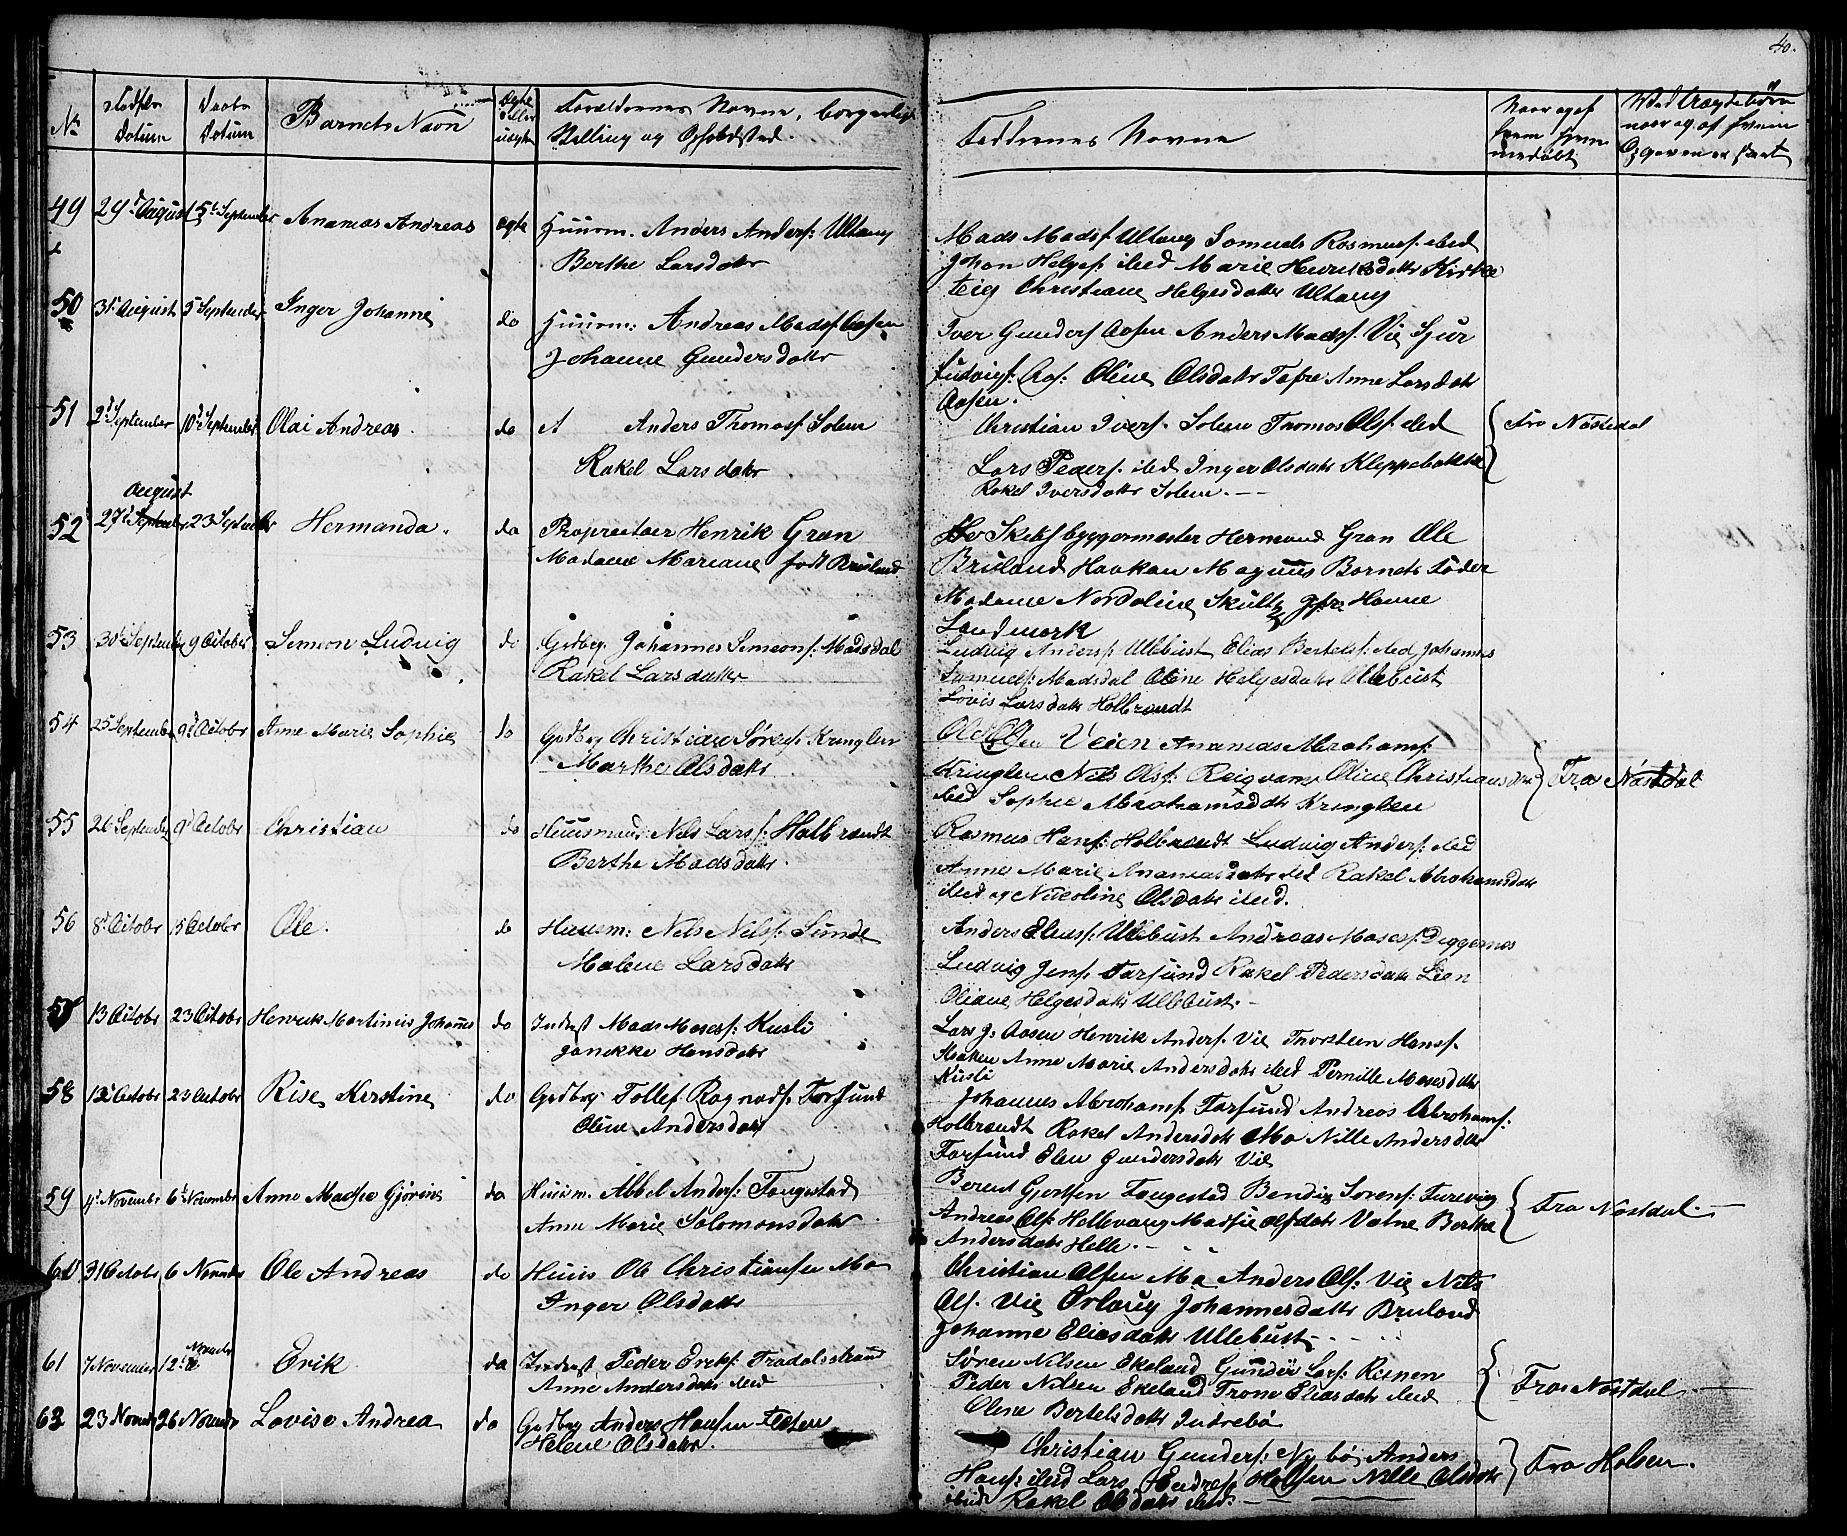 40.
No
Fødsels Datum
Daabs Datum
Barnets Navn
Ægte eller uægte
Forældrenes Navne, borgerlige
Stilling og Opholdssted.
Faddernes Navne
Naar og af hvem hjemmedøbt
49 29d August 5t September Ananias Andreas ægte Huusm. Anders Anders: Ultang
Berthe Larsdatter
Mads Mads: Ultang Samuels Rasmus: ibid
Johan Helges: ibid Marie Henriksdatter Kirke
teig Christiane Helgesdatter Ultang
50 31t August 5 September Inger Johanne do Huusm: Andreas Mads: Aasen
Johanne Gundersdatter
Iver Gunders Aasen Anders Mads: Vie Sjur
Ludvigs: Aas: Oline Olsdatter Tefre Anne Larsdatr
Aasen.
51 2d September 10d September Olai Andreas. do A Anders Thomas: Solem
Rakel Larsdatter
Christian Ivers: Solem Thomas Ols: ibid
Lars Peders: ibid Inger Olsdatr Kleppebakke
Rakel Iversdatter Solem. —
Fra Nøstdal
52 27d August 23 September Hermanda. do Proprietær Henrik Gran
Madame Mariane født Bruland
Hr Skibsbyggermester Hermand Gran Ole
Bruland Haakon Magnus Barnets Fader
Madame Nordoline Skulty Jfr. Hanne
Landmark
53 30t September 9 October Simon Ludvig do Grdbrg. Johannes Simeons: Madsdal
Rakel Larsdatter
Ludvig Anders: Ullebust Elias Bertels: ibid Johannes
Samuels: Madsdal Oline Helgesdatr Ullebust
Lovis Larsdatr Holbrendt
54 25 September 9d October Anne Marie Sophie do Grdbrg Christian Sørens: Kringlen
Marthe Olsdatter
Veien Ananias Abrahams:
Kringlen Nils Ols: Oline Christiansdtr
ibid Sophie Abrahamsdtr Kringlen
Fra Nøstdal
55 26 September 9d October Christian do Huusmand: Nils Lars: Holbrendt
Berthe Madsdatr.
Rasmus Hans: Holbrendt Ludvig Anders: ibid
Anne Marie Ananiasdatr ibid Rakel Abrahamsdatr
ibid og Nicoline Olsdatr ibid.
56 8d October 15 October Ole. do Huusm: Nils Nils: Sunde
Malene Larsdatr
Anders Elias: Ullebust Andreas Moses: Diggernes
Ludvig Jens: Farsund Rakel Pedersdatr Lien
Oliane Helgesdatr Ullebust. —
57 13 October 23 October Henrik Martinius Johannes do Inderst Mads Moses: Kusli
Janekke Hansdatr
Lars J: Aasen Henrik Anders: Vie Thorsteen Hans:
Anne Marie Andersdatr ibid Pernille Mosesdatr
Kusli
58 12t October 23 October Rise Kirstine do Grdbrg. Tollef Ragnvads: Farsund
Oline Andersdatr
Johannes Abrahams: Farsund Andreas Abrahams:
Holbrendt Rakel Andersdatr Mo Nille Andersdatr
Farsund Elen Gundersdatr Vie
59 4d Novembr 6t Novembr Anne Madsie Gjørine do Huusm. Abbel Anders: Fougestad
Anne Marie Salomonsdatr
Berent Gjertsen Fougestad Bendix Sørens: Furevig
Andreas Ols: Hellevang Madsie Olsdatr Vatne Berthe
Andersdatr Helle. —
Fra Nøstdal. —
60 31 October 6 Novembr Ole Andreas do Huus Ole Christiansen Mo
Inger Olsdatr
Christian Olsen Mo Anders Ols: Vie Nils
Ols. Vie Ørlaug Johannesdatr Bruland
Johanne Eliasdatr Ullebust
61 7 November 12te Novembr Erik do Inderst Peder Eriks: Fradalsstrand
Anne Andersdatr ibid
Søren Nilsen Ekeland Gunder Lars:
Peder Nilsen Ekeland Trone Eliasdatr ibid
Oline Bertelsdatr Indrebø
Fra Nøstdal —
62 23 Novembr 26 Novembr Lovise Andrea do Grdbrg Anders Hansen
Helene Olsdatr.
Christian Gunders: Nybø, Anders
Hans: ibid Lars Endres: Holsen Nille Olsdatr
ibid Rakel Olsdatr ibid. —
Fra Holsen.